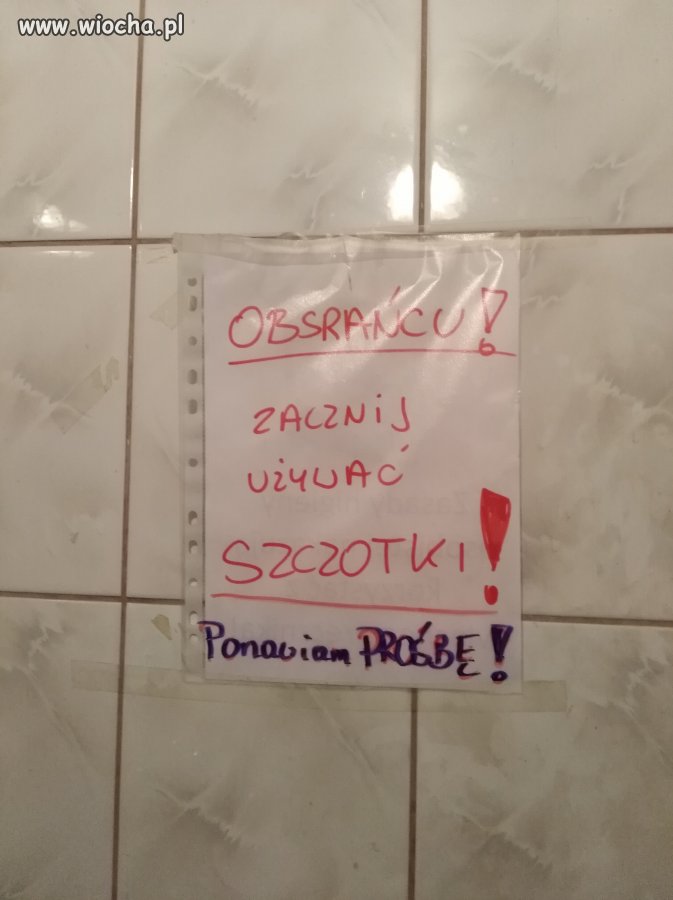 www.wiocha.pl
OBSRAŃCU!
ZACZNIJ
UŻYWAĆ
SZCZOTKI!
Ponawiam PROŚBĘ!